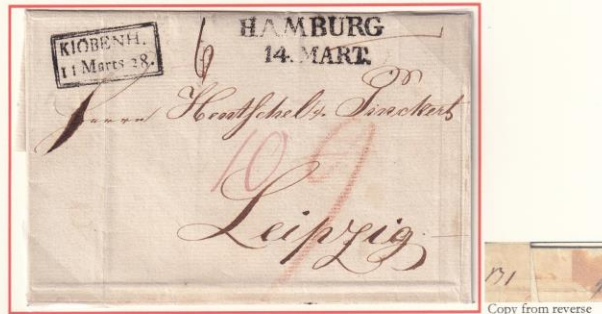 KIOBENH.
11 Marts 28.
HAMBURG
14. MART.
6
Herrn Hentschel & Pinckert
10
Leipzig.
171
Copy from reverse